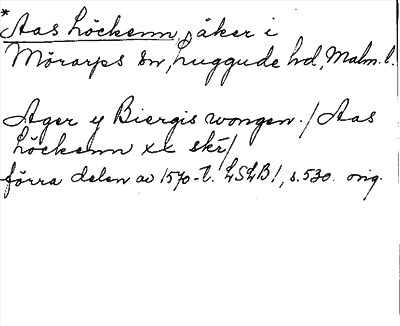 * Aas höckenn, åker i
Mörarps sn, Luggude hd, Malm. l.
Ager y Biergis wongen. / Aas
höckenn xx skr /
förra delen av 1570-t. LSLB1, s. 530. orig.